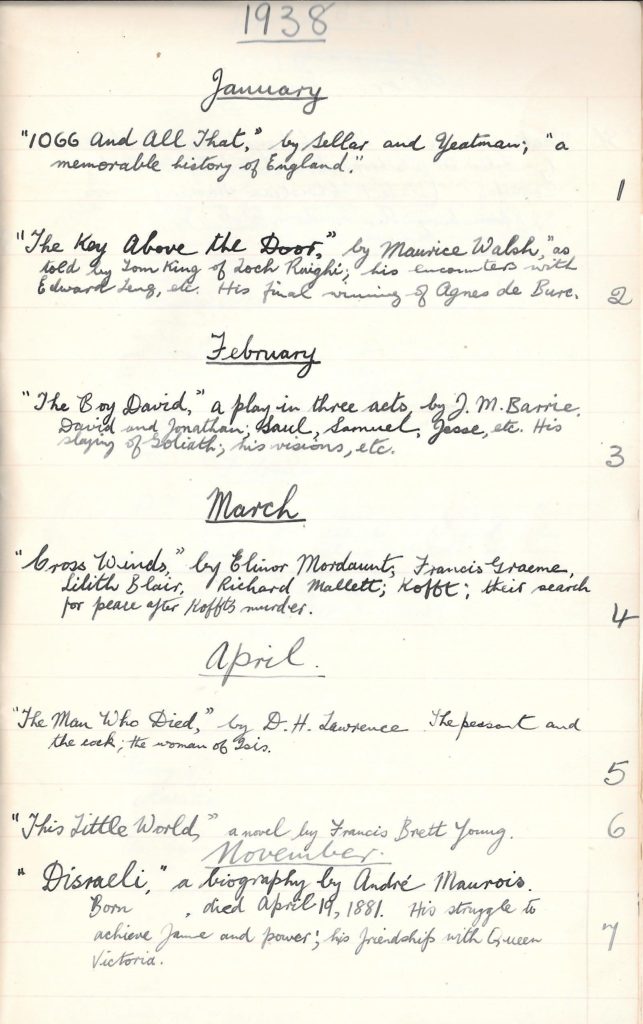 1938
January
"1066 And All That," by Sellar and Yeatman; "a
memorable history of England."
1
"The Key Above the Door," by Maurice Walsh, "as
told by Tom King of Loch Ruighi; his encounters with
Edward Leng, etc. His final winning of Agnes de Burc.
2
February
"The Boy David," a play in three acts, by J. M. Barrie.
David and Jonathan; Saul, Samuel, Jesse, etc. His
slaying of Goliath; his visions, etc.
3
March
"Cross Winds," by Elinor Mordaunt; Francis Graeme,
Lilith Blair, Richard Mallett; Kofft; their search
for peace after Kofft's murder.
4
April.
"The Man Who Died," by D. H. Lawrence. The peasant and
the cock; the woman of Isis.
5
"This Little World," a novel by Francis Brett Young.
6
November.
"Disraeli," a biography by André Maurois.
Born , died April 19, 1881. His struggle to
achieve fame and power; his friendship with Queen
Victoria.
7